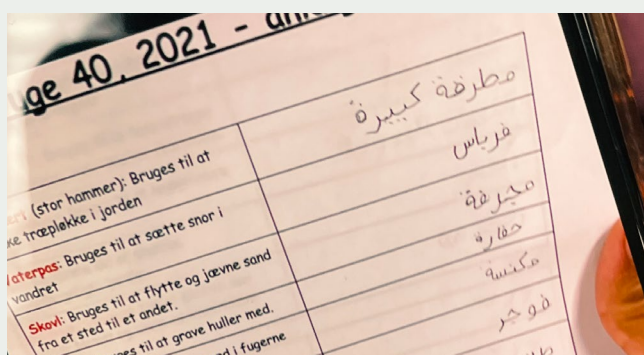 ge 40, 2021 -
(stor hammer): Bruges til at
ke træpløkke i jorden
مطرقة كبيرة
aterpas: Bruges til at sætte snor i
vandret
Skovl: Bruges til at flytte og jævne sand
fra et sted til et andet.
مجرفة
ges til at grave huller med.
حفارة
d i fugerne
مكنسة